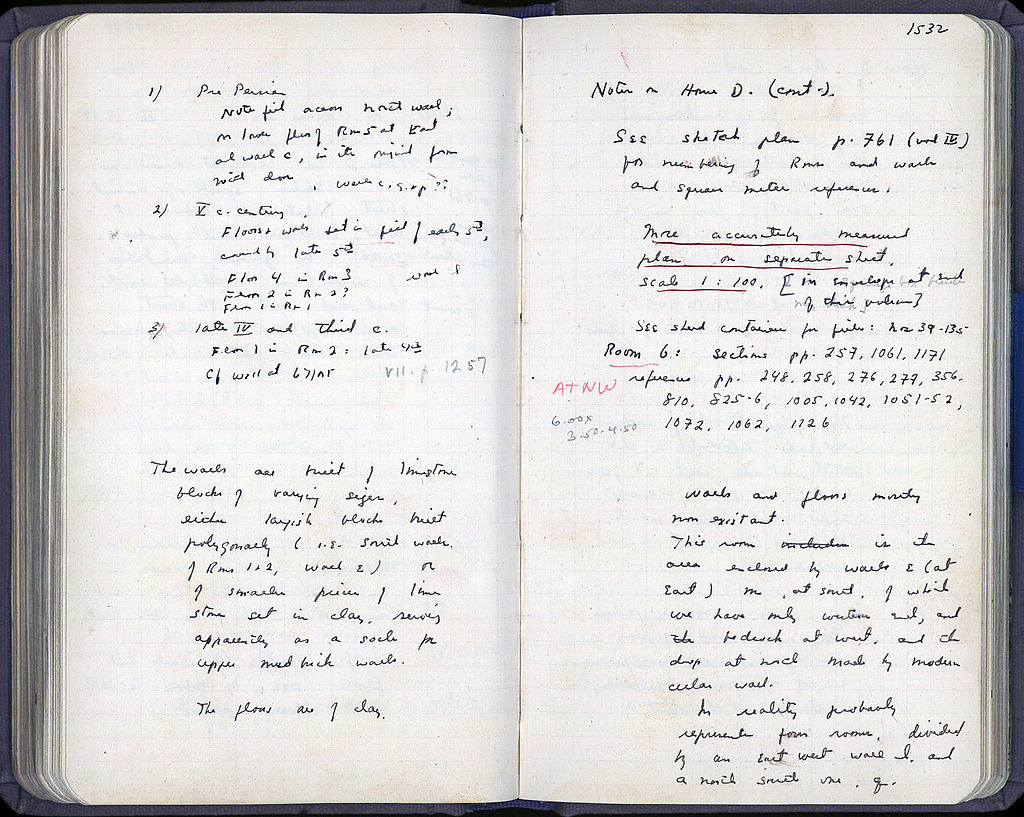 1) Pre Persian
Note fill across north wall;
on lower floor of Rm 5 at East
at wall c, in its original form
with door, wall c, g, r, p ??
2) V c. century.
Floors + walls set in fill of early 5th,
late 5th
Floor 4 in Rm 3 wall l
Floor 2 in Rm 2?
Floor 1 in Rm 1
3) late IV and third c.
Floor 1 in Rm 2: late 4th
Cf well at 67/ VII. p. 1257
The walls are built of limestone
blocks of varying sizes,
either largish blocks built
polygonally (i.e. south walls
of Rms 1+2, wall E) or
of smaller pieces of lime
stone set in clay, serving
apparently as a socle for
upper mud brick walls.
The floors are of clay.
1532
Notes on House D. (cont.).
See sketch plan p. 761 (vol IV)
for numbering of Rms and walls
and square meter references.
More accurately measured
plan on separate sheet,
scale 1:100. [in envelope at end
of this volume]
See shed container for finds: Nos 39-135
Room 6: sections pp. 257, 1061, 1171
references pp. 248, 258, 276, 277, 356.
A+NW
810, 825-6, 1005, 1042, 1051-52,
6.00x
3.50-4.50
1072, 1062, 1126
Walls and floors mostly
non existant.
This room includes is the
area enclosed by walls E (at
East) m, at south, of which
we have only western end, and
the bedrock at west, and the
drop at north made by modern
cellar wall.
In reality probably
represents four rooms, divided
by an east west wall l, and
a north south one, q.